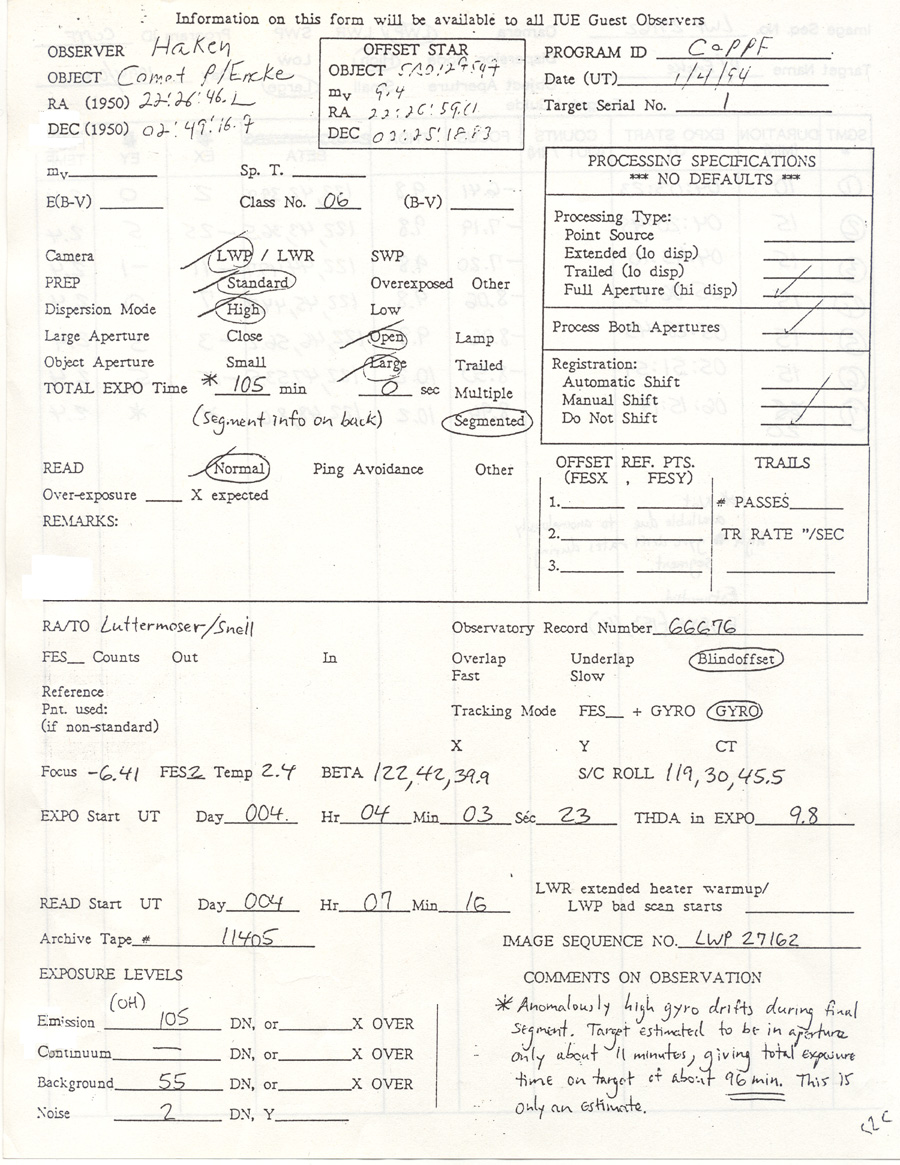 Information on this form will be available to all IUE Guest Observers
OBSERVER Haken
OBJECT Comet P/Encke
RA (1950) 22:26:46.
DEC (1950) 02:49:16.7
OFFSET STAR
OBJECT
mv 9.4
RA
DEC 02:25:18.83
PROGRAM ID COPPF
Date (UT) 1/4/94
Target Serial No. 1
mv Sp. T.
E(B-V) Class No. 06 (B-V)
Camera LWP / LWR SWP
PREP Standard Overexposed Other
Dispersion Mode High Low
Large Aperture Close Open Lamp
Object Aperture Small Large Trailed
TOTAL EXPO Time * 105 min 0 sec Multiple
(Segment info on back) Segmented
READ Normal Ping Avoidance Other
Over-exposure X expected
REMARKS:
PROCESSING SPECIFICATIONS
*** NO DEFAULTS ***
Processing Type:
Point Source
Extended (lo disp)
Trailed (lo disp)
Full Aperture (hi disp)
Process Both Apertures
Registration:
Automatic Shift
Manual Shift
Do Not Shift
OFFSET REF. PTS.
(FESX , FESY)
1.
2.
3.
TRAILS
# PASSES
TR RATE "/SEC
RA/TO Luttermoser/Snell
Observatory Record Number 66676
FES Counts Out In
Overlap Underlap Blindoffset
Fast Slow
Reference
Pnt. used:
(if non-standard)
Tracking Mode FES + GYRO GYRO
X Y CT
Focus -6.41 FES2 Temp 2.4 BETA 122,42,39.9 S/C ROLL 119,30,45.5
EXPO Start UT Day 004. Hr 04 Min 03 Sec 23 THDA in EXPO 9.8
LWR extended heater warmup/
LWP bad scan starts
READ Start UT Day 004 Hr 07 Min 16
Archive Tape # 11405
IMAGE SEQUENCE NO. LWP 27162
EXPOSURE LEVELS
(OH)
Emission 105 DN, or X OVER
Continuum — DN, or X OVER
Background 55 DN, or X OVER
Noise 2 DN, Y
COMMENTS ON OBSERVATION
* Anomalously high gyro drifts during final
segment. Target estimated to be in aperture
only about 11 minutes, giving total exposure
time on target of about 96 min. This is
only an estimate.